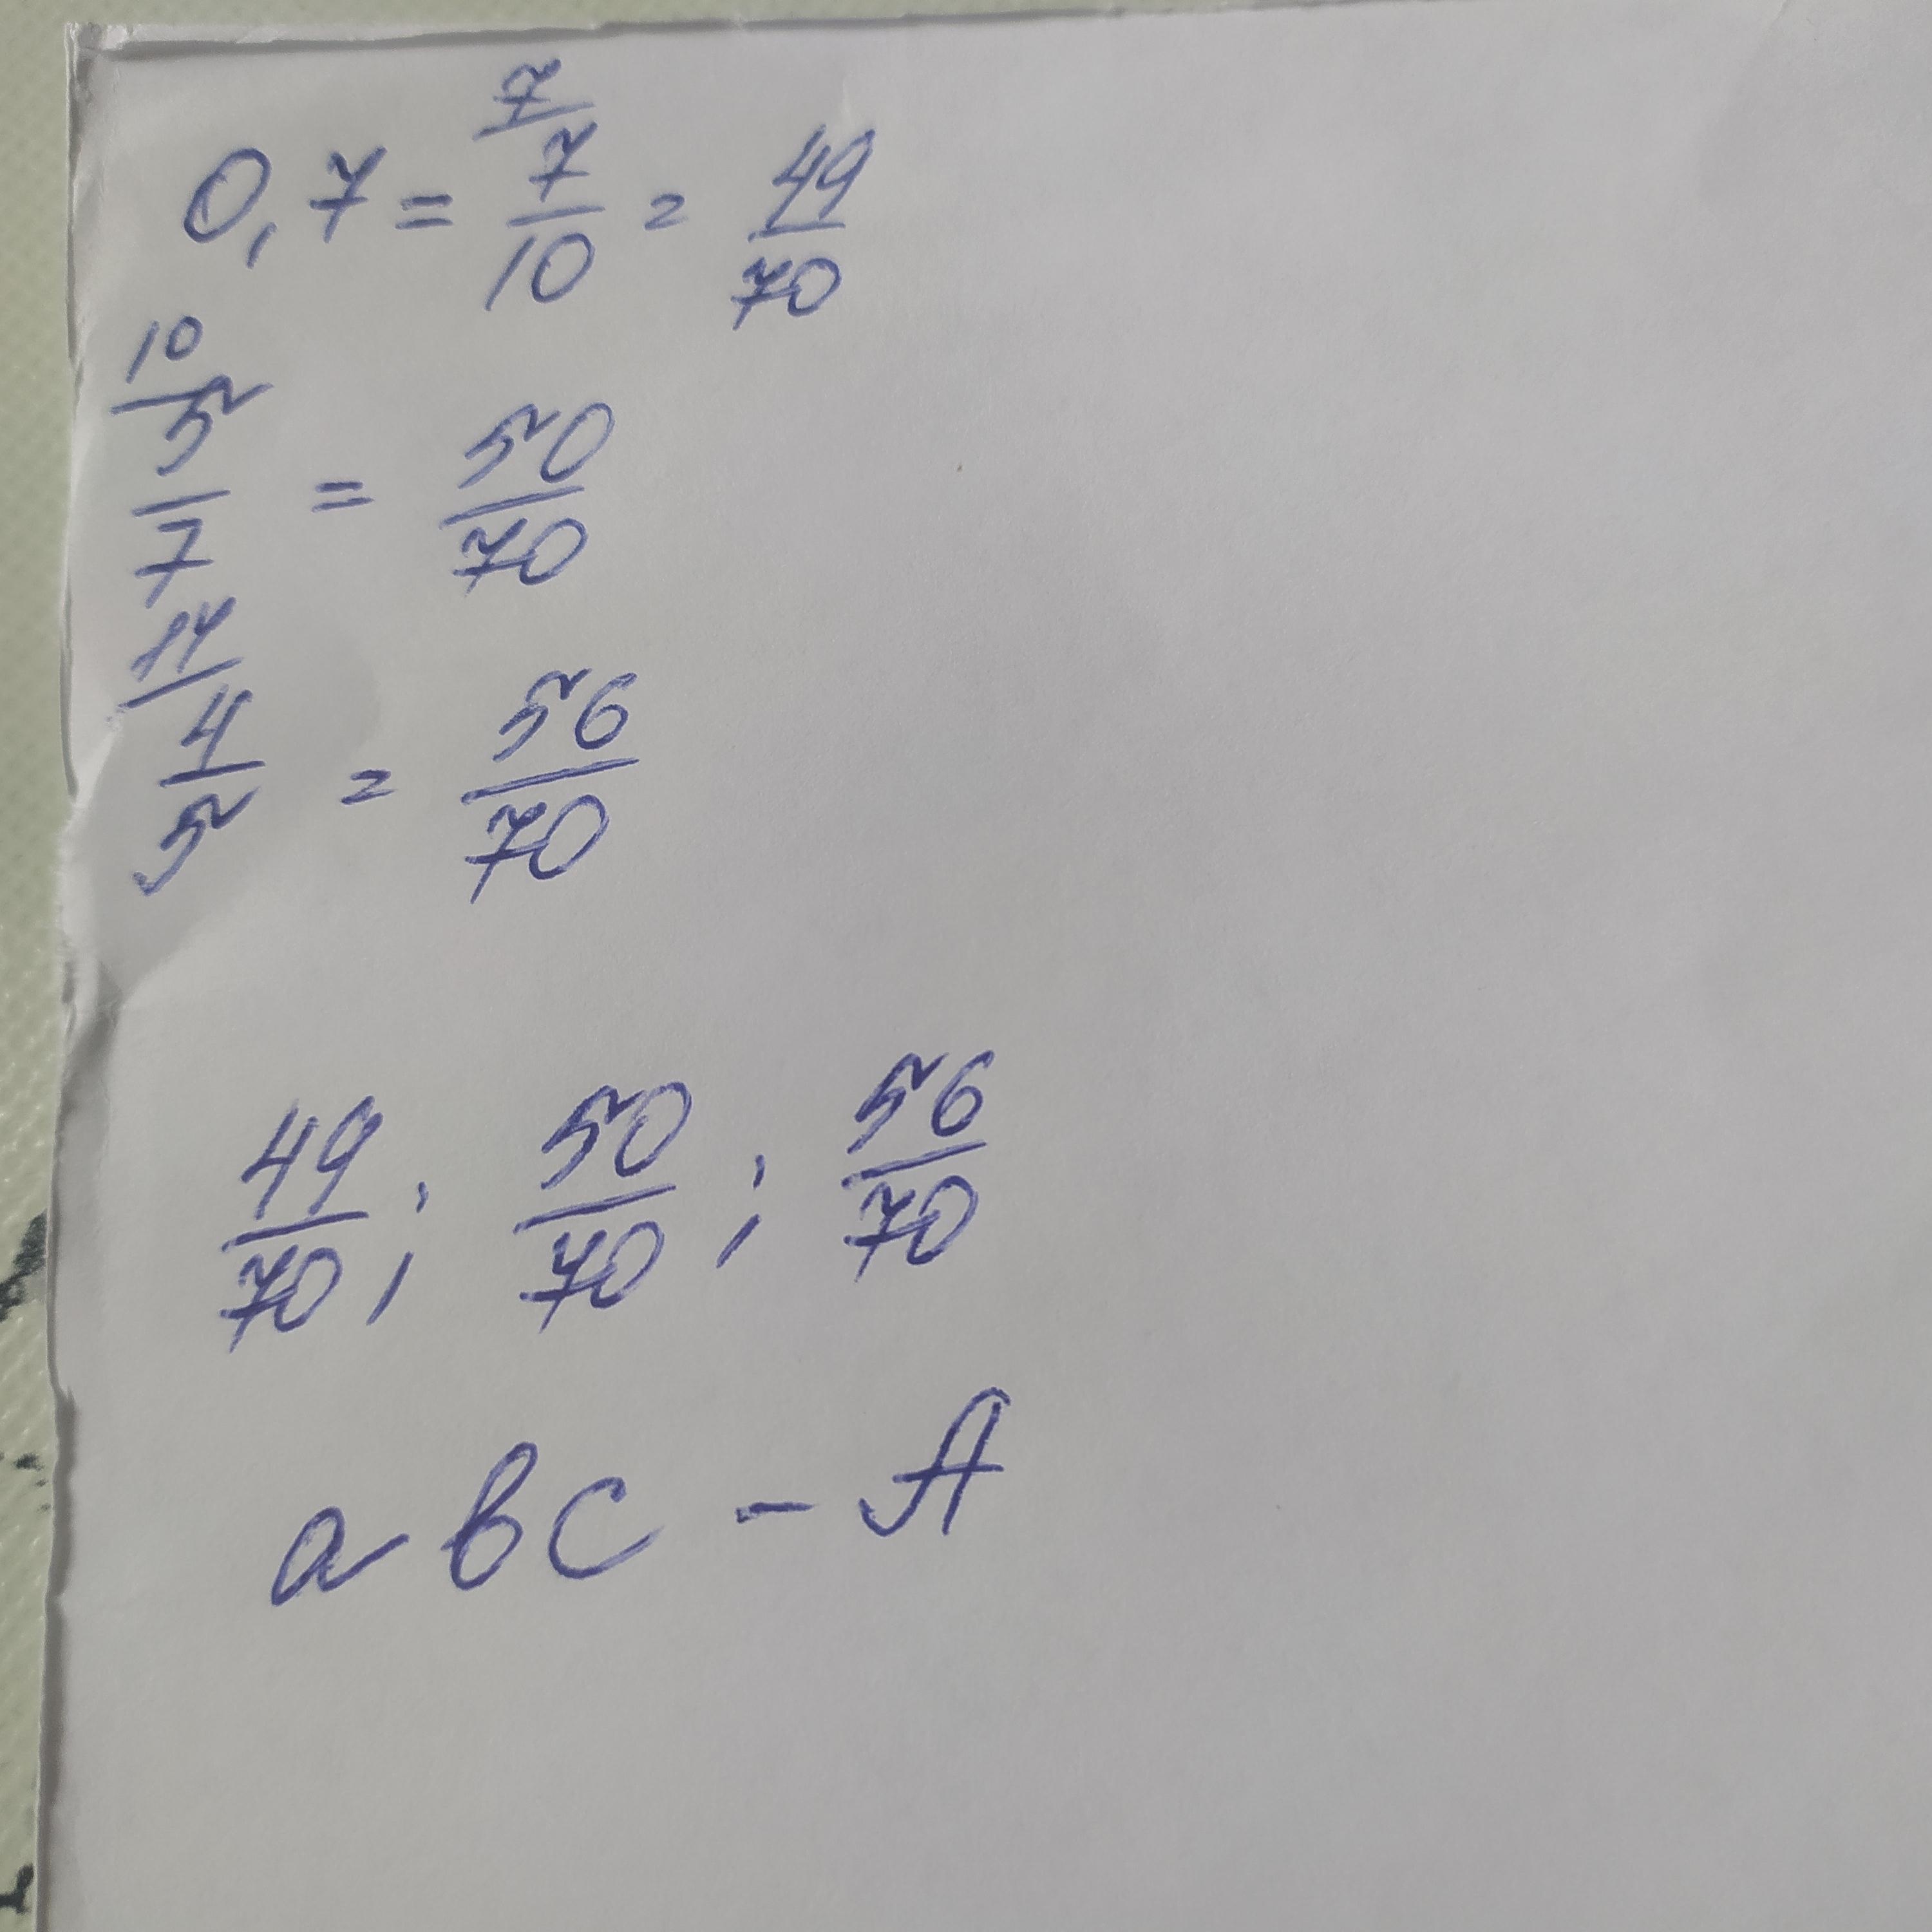 0,7 = 7/ 7/10 = 49/70
10/ 5/7 = 50/70
14/ 4/5 = 56/70
49/70 ; 50/70 ; 56/70
a b c - A